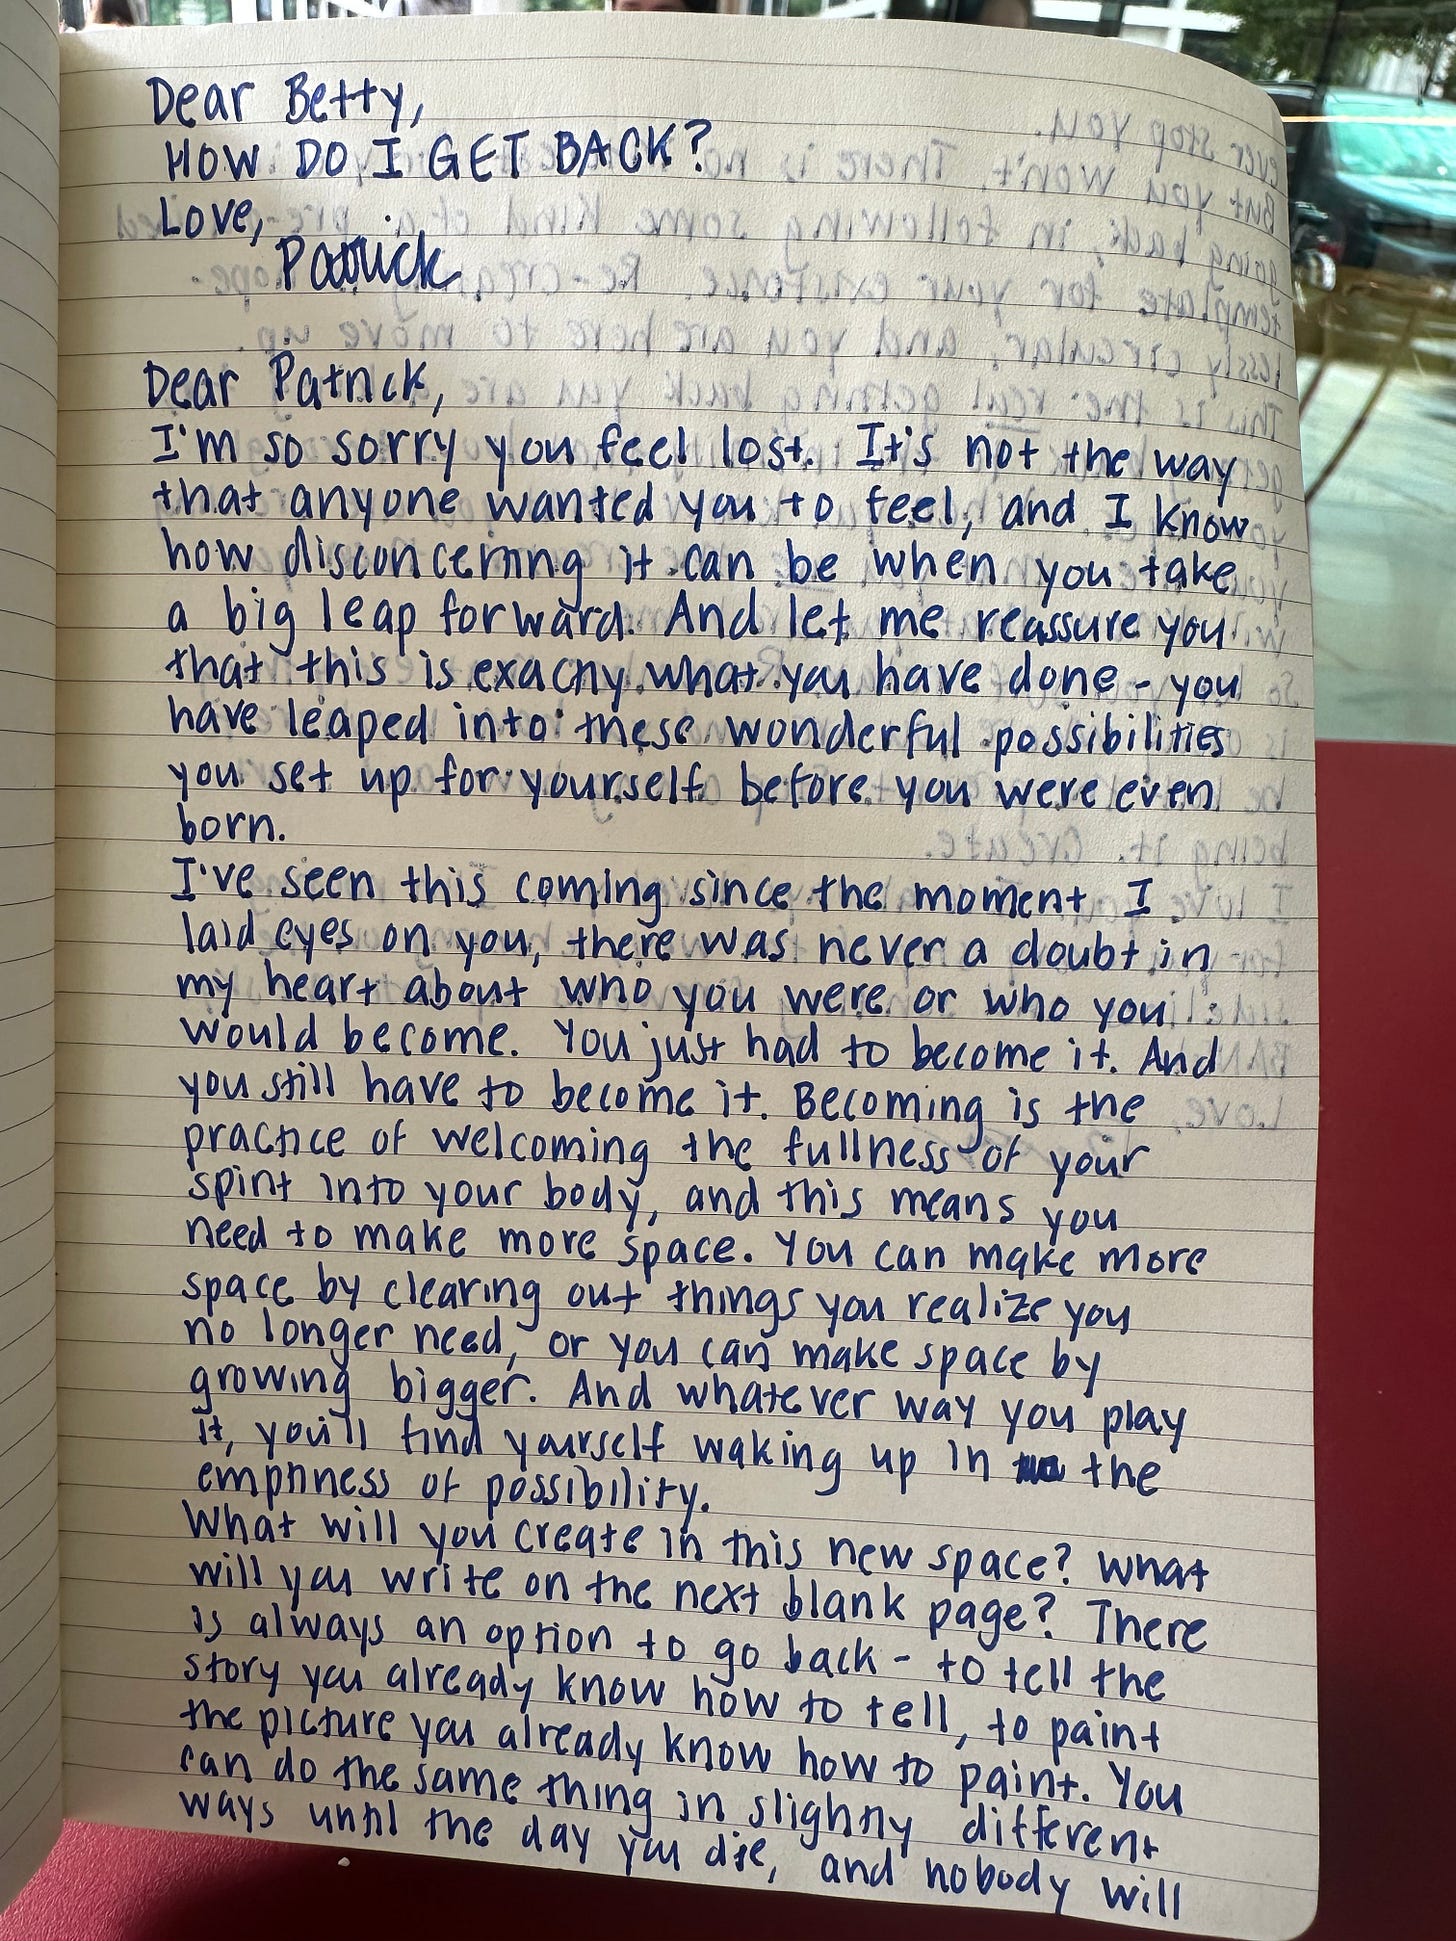 Dear Betty,
HOW DO I GET BACK?
Love,
Patrick
Dear Patrick,
I'm so sorry you feel lost. It's not the way
that anyone wanted you to feel, and I know
how disconcerning it can be when you take
a big leap forward. And let me reassure you
that this is exactly what you have done - you
have leaped into these wonderful possibilities
you set up for yourself before you were even
born.
I've seen this coming since the moment I
laid eyes on you, there was never a doubt in
my heart about who you were or who you
would become. You just had to become it. And
you still have to become it. Becoming is the
practice of welcoming the fullness of your
spirit into your body, and this means you
need to make more space. You can make more
space by clearing out things you realize you
no longer need, or you can make space by
growing bigger. And whatever way you play
it, you'll find yourself waking up in the
emptiness of possibility.
What will you create in this new space? What
will you write on the next blank page? There
is always an option to go back - to tell the
story you already know how to tell, to paint
the picture you already know how to paint. You
can do the same thing in slightly different
ways until the day you die, and nobody will
ever stop you.
But you won't. There is no
going back, in following some kind of a
template for your existence. Re-creating is hope-
lessly circular, and you are here to move up.
This is the real getting back you are
being it. Create.
I love you
Love,